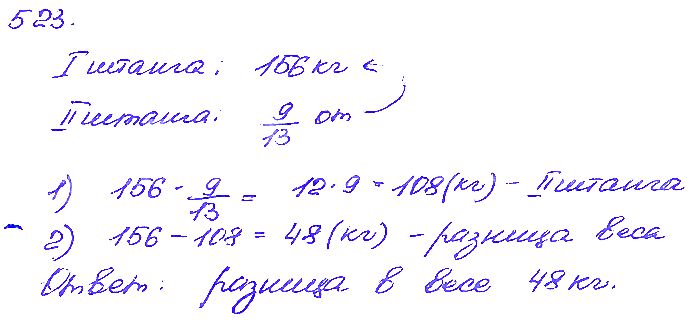 523.
I штанга: 156 кг
II штанга: 9/13 от
1) 156 · 9/13 = 12 · 9 = 108 (кг) – II штанга
2) 156 – 108 = 48 (кг) – разница веса
Ответ: разница в весе 48 кг.